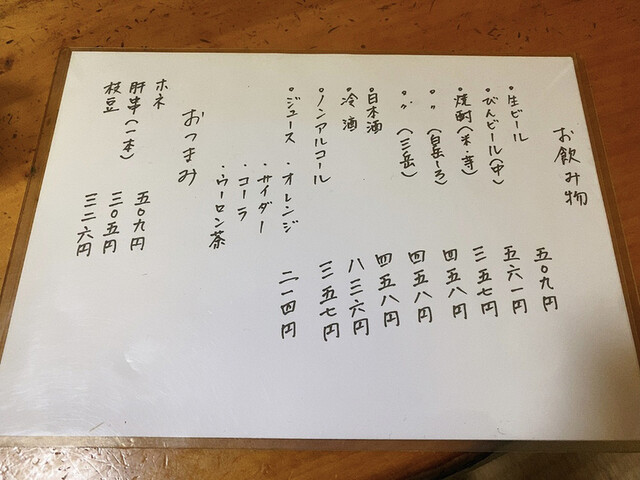 お飲み物
・生ビール 五〇九円
・びんビール(中) 五六一円
・焼酎(米・芋) 三五七円
・〃(白岳しろ) 四五八円
・〃(三岳) 四五八円
・日本酒 四五八円
・冷酒 八三六円
・ノンアルコール 三五七円
・ジュース ・オレンジ 二一四円
・サイダー
・コーラ
・ウーロン茶
おつまみ
ホネ 五〇九円
肝串(一本) 三〇五円
枝豆 三二六円